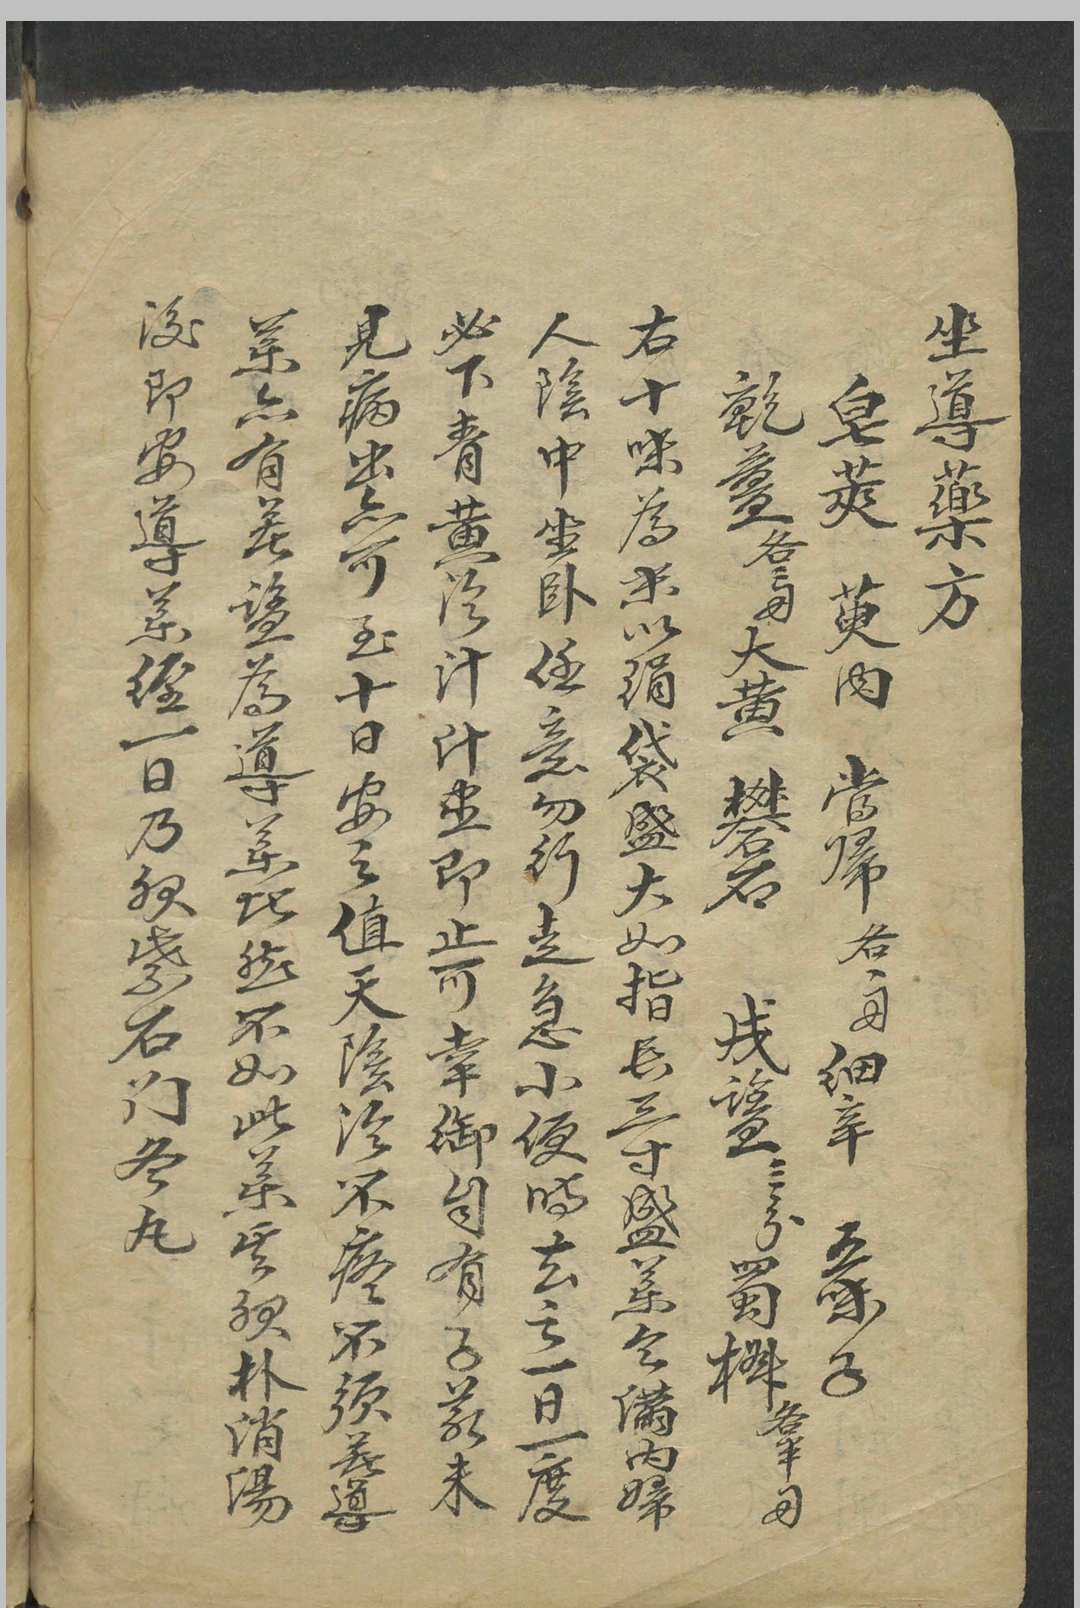 坐導藥方
皂莢 萸肉 當歸各一両細辛 五味子
乾薑各二両大黄 礬石 戎塩二分蜀椒各半両
右十味為末以絹袋盛大如指長三寸盛薬令滿內婦
人陰中坐卧任意勿行走急小便時去之一日一度
必下青黄冷汁汁盡即止可幸御自有子若未
見病出亦可至十日安之值天陰冷不疼不須著導
薬亦有著塩為導薬比然不如此薬其服朴消湯
後即安導薬經一日乃服紫石门冬丸